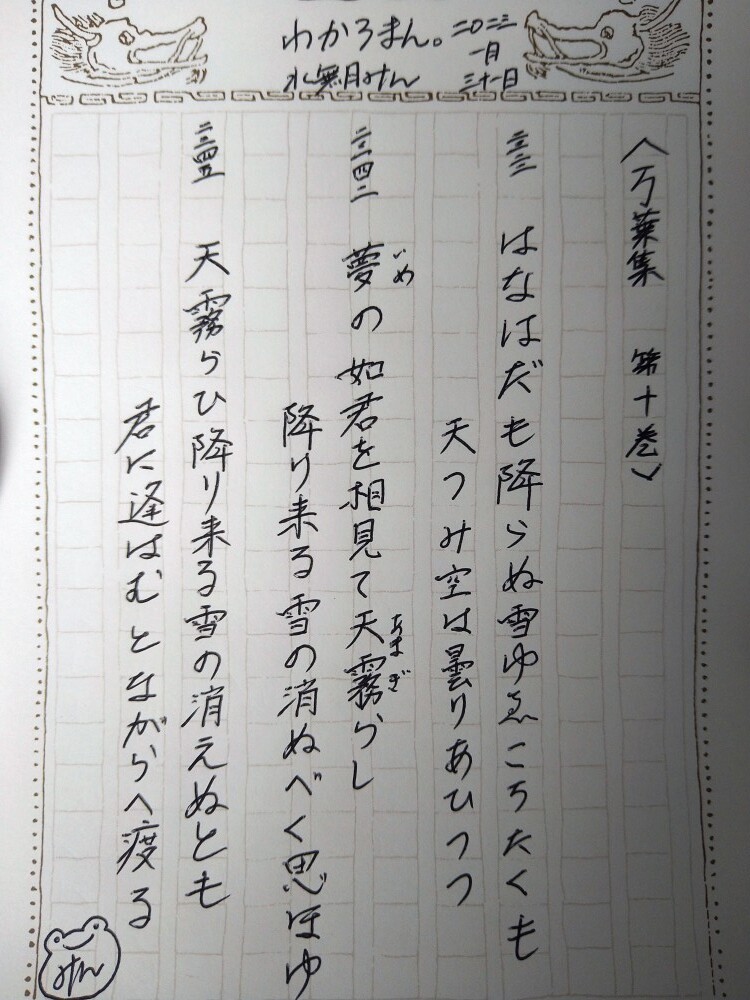 わかろまん。
水無月みん
二〇二三
一月
三十一日
〈万葉集 第十巻〉
二三二二 はなはだも降らぬ雪ゆゑこちたくも
天つみ空は曇りあひつつ
二三四二 夢の如君を相見て天霧らし
いめ
あまぎ
降り来る雪の消ぬべく思ほゆ
二三四五 天霧らひ降り来る雪の消えぬとも
君に逢はむとながらへ渡る
みん